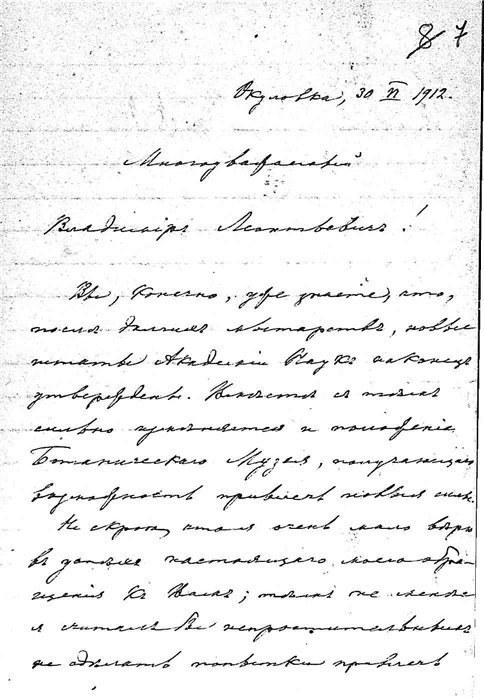 8 7
Окуловка, 30 VI 1912.
Многоуважаемый
Владиміръ Леонтьевичъ!
Вы, конечно, уже знаете, что,
послѣ долгихъ мытарствъ, новые
штаты Академіи Наукъ наконецъ
утверждены. Вмѣстѣ съ тѣмъ
сильно измѣняется и положеніе
Ботаническаго Музея, получающаго
возможность привлечь новыя силы.
Не скрою, что я очень мало вѣрю
въ успѣхъ настоящаго моего обра-
щенія къ Вамъ; тѣмъ не менѣе
я считалъ бы непростительнымъ
не сдѣлать попытки привлечь